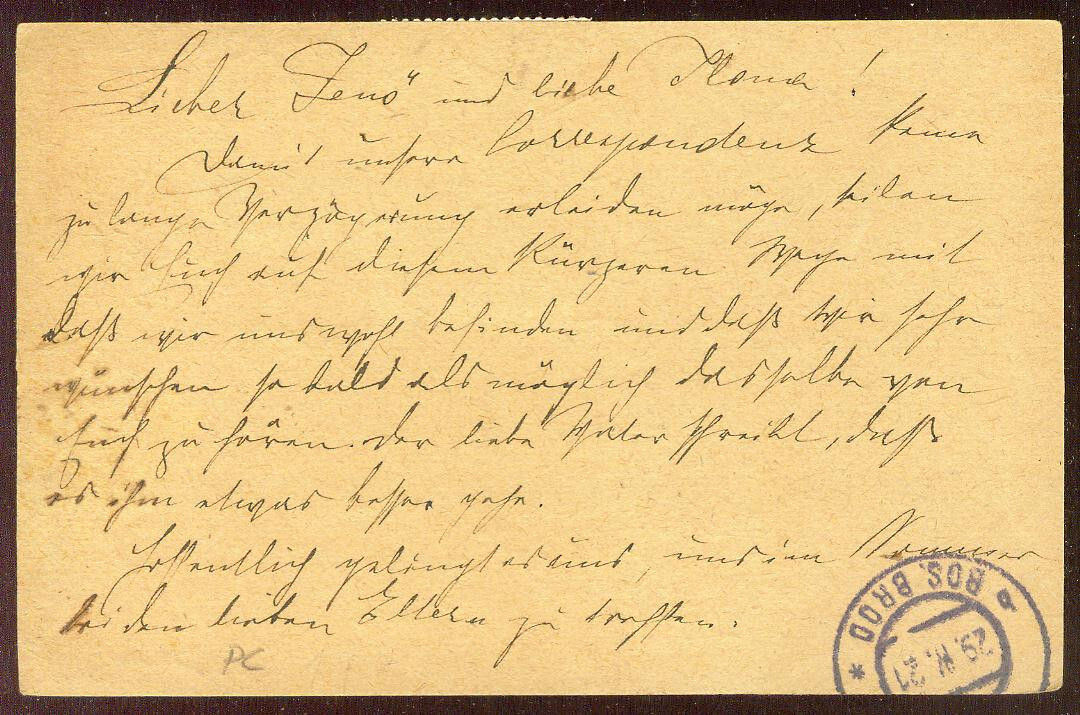 Lieber Jenö und liebe Ilona!
Damit unsere Correspondenz keine
zu lange Verzögerung erleiden möge, teilen
wir Euch auf diesem kürzeren Wege mit
daß wir uns wohl befinden und daß wir sehr
wünschen so bald als möglich dasselbe von
Euch zu hören. Der liebe Vater schreibt, daß
es ihm etwas besser gehe.
Hoffentlich gelingt es uns, uns im Sommer
bei den lieben Eltern zu treffen.
PC
BOS. BROD
29. 21